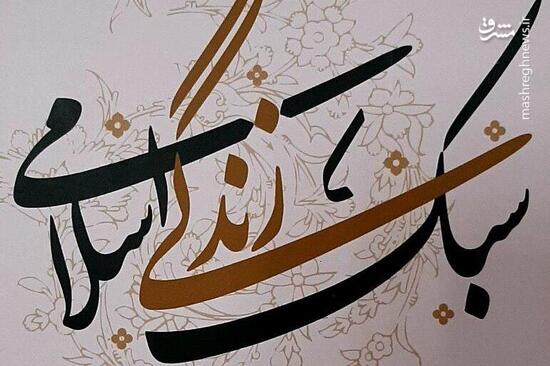 سبک زندگی اسلامی
مشرق
mashreghnews.ir